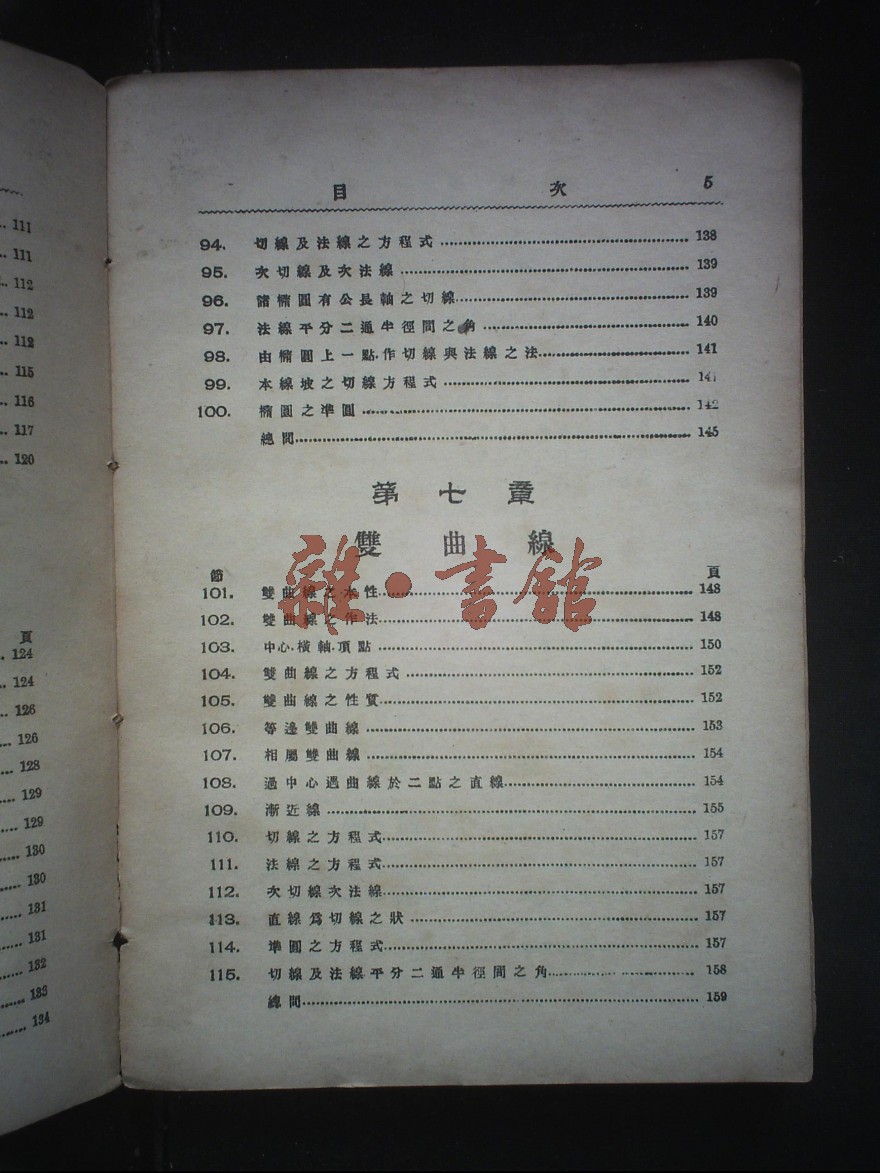 111
111
112
112
112
115
116
117
120
頁
124
124
126
126
128
129
129
130
130
131
131
132
133
134
目 次 5
94. 切線及法線之方程式 138
95. 次切線及次法線 139
96. 諸橢圓有公長軸之切線 139
97. 法線平分二通半徑間之角 140
98. 由橢圓上一點,作切線與法線之法 141
99. 本線坡之切線方程式 141
100. 橢圓之準圓 142
總問 145
第七章
雙曲線
節 頁
101. 雙曲線之本性 148
102. 雙曲線之作法 148
103. 中心,橫軸,頂點 150
104. 雙曲線之方程式 152
105. 雙曲線之性質 152
106. 等邊雙曲線 153
107. 相屬雙曲線 154
108. 過中心遇曲線於二點之直線 154
109. 漸近線 155
110. 切線之方程式 157
111. 法線之方程式 157
112. 次切線次法線 157
113. 直線爲切線之狀 157
114. 準圓之方程式 157
115. 切線及法線平分二通半徑間之角 158
總問 159
雜·書館